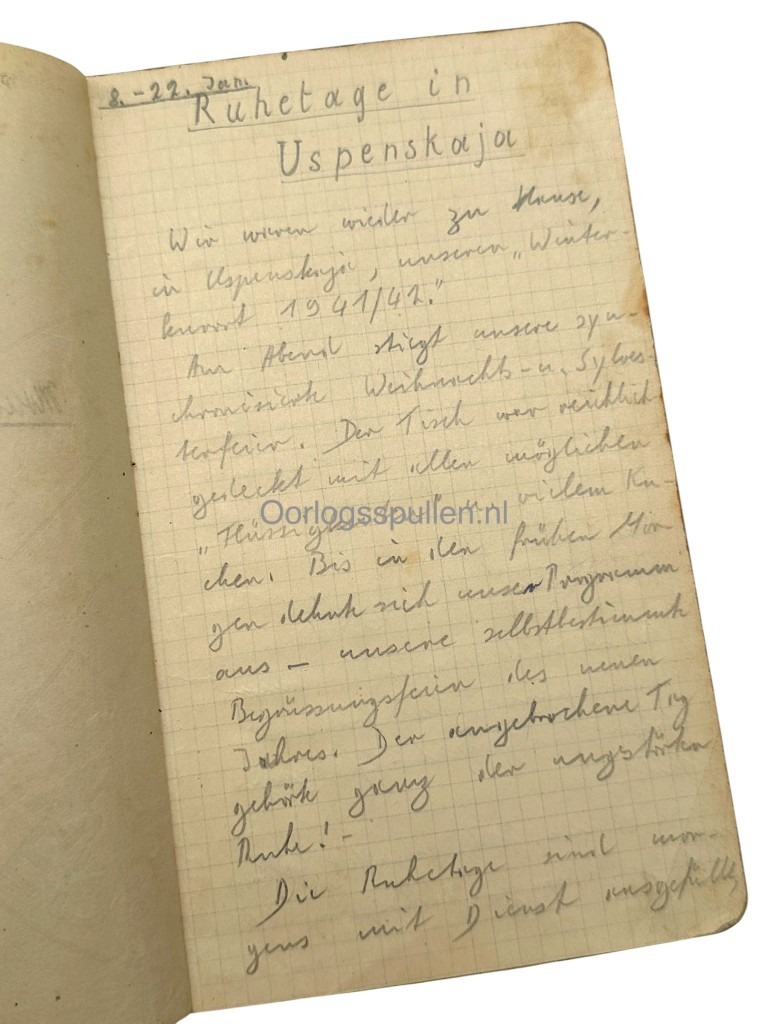 8. - 22. Jan.
Ruhetage in
Uspenskaja
Wir waren wieder zu Hause,
in Uspenskaja, unseren „Winter-
kurort 1941/42."
Am Abend stiegt unsere syn-
chronisierte Weihnachts- u. Sylves-
terfeier. Der Tisch war reichlich
gedeckt mit allen möglichen
"Flüssigkeiten" u. vielem Ku-
Oorlogsspullen.nl
chen. Bis in den frühen Mor
gen dehnt sich unser Programm
aus – unsere selbstbestimmte
Begrüssungsfeier des neuen
Jahres. Der angebrochene Tag
gehört ganz der ungstörten
Ruhe! -
Die Ruhetage sind mor-
gens mit Dienst ausgefüllt,